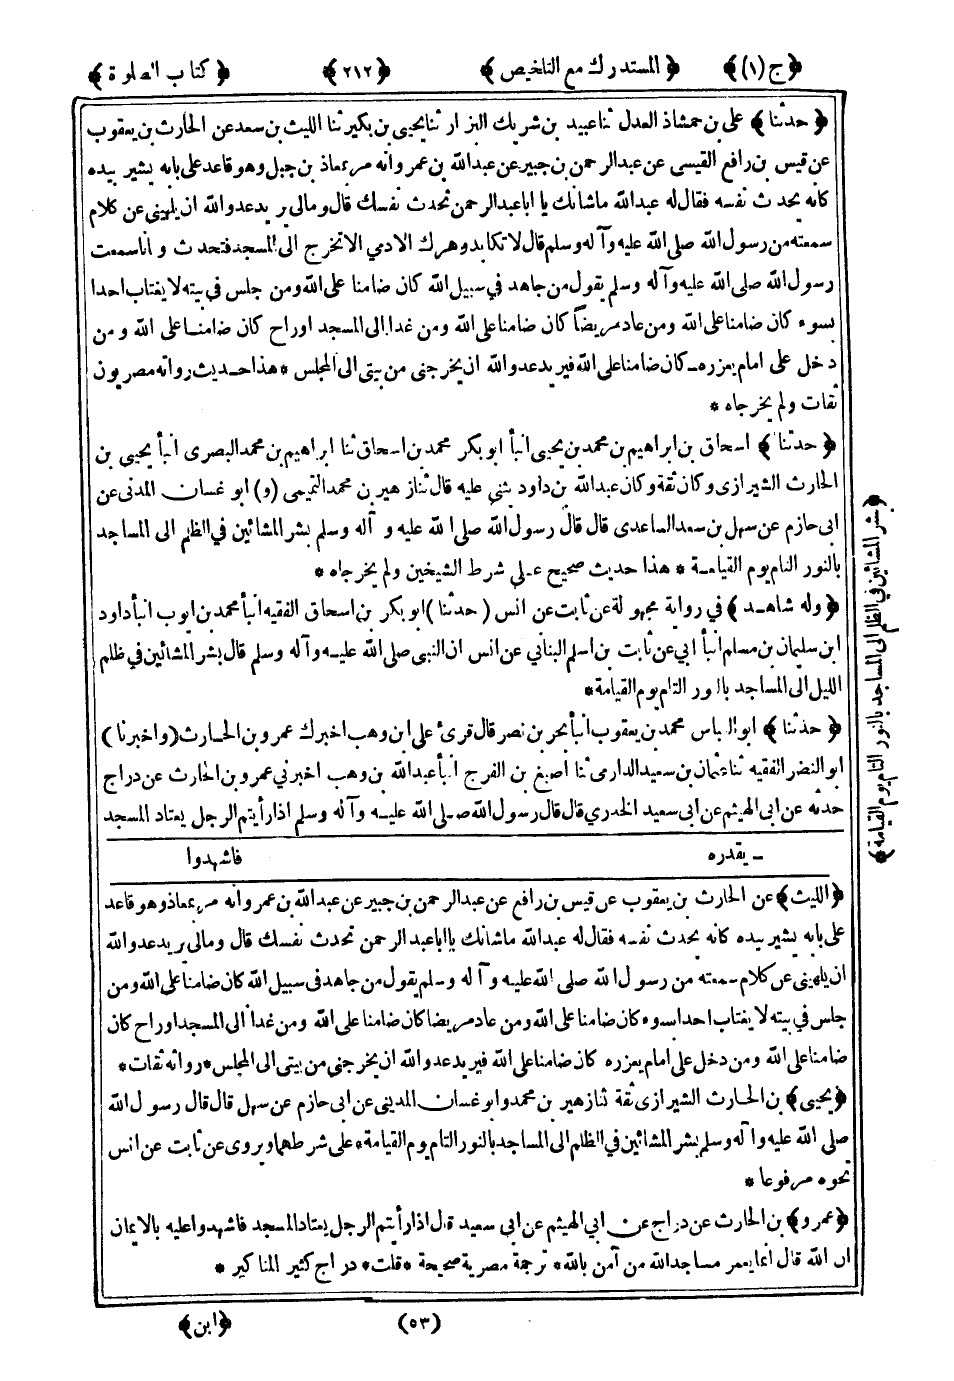 ﴿ ج (١) ﴾ ﴿ المستدرك مع التلخيص ﴾ ﴿ ٢١٢ ﴾ ﴿ كتاب الصلوة ﴾
﴿ حدثنا ﴾ على بن حمشاذ العدل ثنا عبيد بن شريك البزار ثنا يحيى بن بكير ثنا الليث بن سعد عن الحارث بن يعقوب
عن قيس بن رافع القيسى عن عبد الرحمن بن جبير عن عبد الله بن عمر وانه مر بمعاذ بن جبل وهو قاعد على بابه يشير بيده
كانه يحدث نفسه فقال له عبد الله ما شانك يا ابا عبد الرحمن تحدث نفسك قال ومالى يريد عدو الله ان يلهينى عن كلام
سمعته من رسول الله صلى الله عليه وآله وسلم قال لا تكابد وهرك الادمى الا تخرج الى المسجد فتحدث و انا سمعت
رسول الله صلى الله عليه وآله وسلم يقول من جاهد في سبيل الله كان ضامنا على الله ومن جلس في بيته لا يغتاب احدا
بسوء كان ضامنا على الله ومن عاد مريضاً كان ضامنا على الله ومن غدا الى المسجد اوراح كان ضامنا على الله ومن
دخل على امام يعزره ـ كان ضامنا على الله فيريد عدو الله ان يخرجنى من بيتى الى المجلس * هذا حديث رواته مصريون
ثقات ولم يخرجاه *
﴿ حدثنا ﴾ اسحاق بن ابراهيم بن محمد بن يحيى انبأ ابو بكر محمد بن اسحاق ثنا ابراهيم بن محمد البصرى انبأ يحيى بن
الحارث الشيرازى وكان ثقة وكان عبد الله بن داود يثنى عليه قال ثنا زهير بن محمد التميمى (و) ابو غسان المدنى عن
ابى حازم عن سهل بن سعد الساعدى قال قال رسول الله صلى الله عليه و آله وسلم بشر المشائين في الظلم الى المساجد
بالنور التام يوم القيامة * هذا حديث صحيح على شرط الشيخين ولم يخرجاه *
﴿ وله شاهد ﴾ في رواية مجهولة عن ثابت عن انس ( حدثنا ) ابو بكر بن اسحاق الفقيه انبأ محمد بن ايوب انبأ داود
ابن سليمان بن مسلم انبأ ابي عن ثابت بن اسلم البناني عن انس ان النبى صلى الله عليه وآله وسلم قال بشر المشائين في ظلم
الليل الى المساجد بالنور التام يوم القيامة *
﴿ حدثنا ﴾ ابو العباس محمد بن يعقوب انبأ بحر بن نصر قال قرئ على ابن وهب اخبرك عمرو بن الحارث (واخبرنا)
ابو النضر الفقيه ثنا عثمان بن سعيد الدارمى ثنا اصبغ بن الفرج انبأ عبد الله بن وهب اخبرني عمرو بن الحارث عن دراج
حدثه عن ابى الهيثم عن ابى سعيد الخدري قال قال رسول الله صلى الله عليه وآله وسلم اذا رأيتم الرجل يعتاد المسجد
ـ يقدره فاشهدوا
﴿ الليث ﴾ عن الحارث بن يعقوب عن قيس بن رافع عن عبد الرحمن بن جبير عن عبد الله بن عمرو انه مر بمعاذ وهو قاعد
على بابه يشير بيده كانه يحدث نفسه فقال له عبد الله ما شانك يا ابا عبد الرحمن تحدث نفسك قال ومالى يريد عدو الله
ان يلهينى عن كلام سمعته من رسول الله صلى الله عليه وآله وسلم يقول من جاهد فى سبيل الله كان ضامنا على الله ومن
جلس في بيته لا يغتاب احدا بسوء كان ضامنا على الله ومن عاد مريضا كان ضامنا على الله ومن غدا الى المسجد اوراح كان
ضامنا على الله ومن دخل على امام يعزره كان ضامنا على الله فيريد عدو الله ان يخرجنى من بيتى الى المجلس * رواته ثقات *
﴿ يحيى ﴾ بن الحارث الشيرازى ثقة ثنا زهير بن محمد وابو غسان المدينى عن ابى حازم عن سهل قال قال رسول الله
صلى الله عليه وآله وسلم بشر المشائين في الظلم الى المساجد بالنور التام يوم القيامة * على شرطهما ويروى عن ثابت عن انس
نحوه مرفوعا *
﴿ عمرو ﴾ بن الحارث عن دراج عن ابي الهيثم عن ابي سعيد قال اذا رأيتم الرجل يعتاد المسجد فاشهدوا عليه بالايمان
ان الله قال انما يعمر مساجد الله من آمن بالله * ترجمة مصرية صحيحة * قلت * دراج كثير المناكير *
﴿ بشر المشائين في الظلم الى المساجد بالنور التام يوم القيامة ﴾
(٥٣) ﴿ ابن ﴾